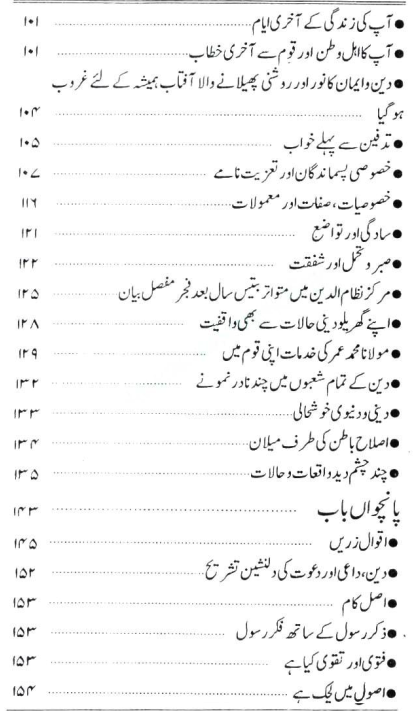 ● آپ کی زندگی کے آخری ایام ۱۰۱
● آپ کا اہل وطن اور قوم سے آخری خطاب ۱۰۱
● دین و ایمان کا نور اور روشنی پھیلانے والا آفتاب ہمیشہ کے لئے غروب
ہو گیا ۱۰۴
● تدفین سے پہلے خواب ۱۰۵
● خصوصی پسماندگان اور تعزیت نامے ۱۰۷
● خصوصیات، صفات اور معمولات ۱۱۶
● سادگی اور تواضع ۱۲۱
● صبر و تحمل اور شفقت ۱۲۲
● مرکز نظام الدین میں متواتر بتیس سال بعد فجر مفصل بیان ۱۲۵
● اپنے گھریلو دینی حالات سے بھی واقفیت ۱۲۸
● مولانا محمد عمر کی خدمات اپنی قوم میں ۱۲۹
● دین کے تمام شعبوں میں چند نادر نمونے ۱۳۲
● دینی و دنیوی خوشحالی ۱۳۳
● اصلاح باطن کی طرف میلان ۱۳۴
● چند چشم دید واقعات و حالات ۱۳۵
پانچواں باب ۱۴۳
● اقوال زریں ۱۴۵
● دین، داعی اور دعوت کی دلنشین تشریح ۱۵۲
● اصل کام ۱۵۳
● ذکر رسول کے ساتھ فکر رسول ۱۵۳
● فتویٰ اور تقویٰ کیا ہے ۱۵۳
● اصول میں لچک ہے ۱۵۴